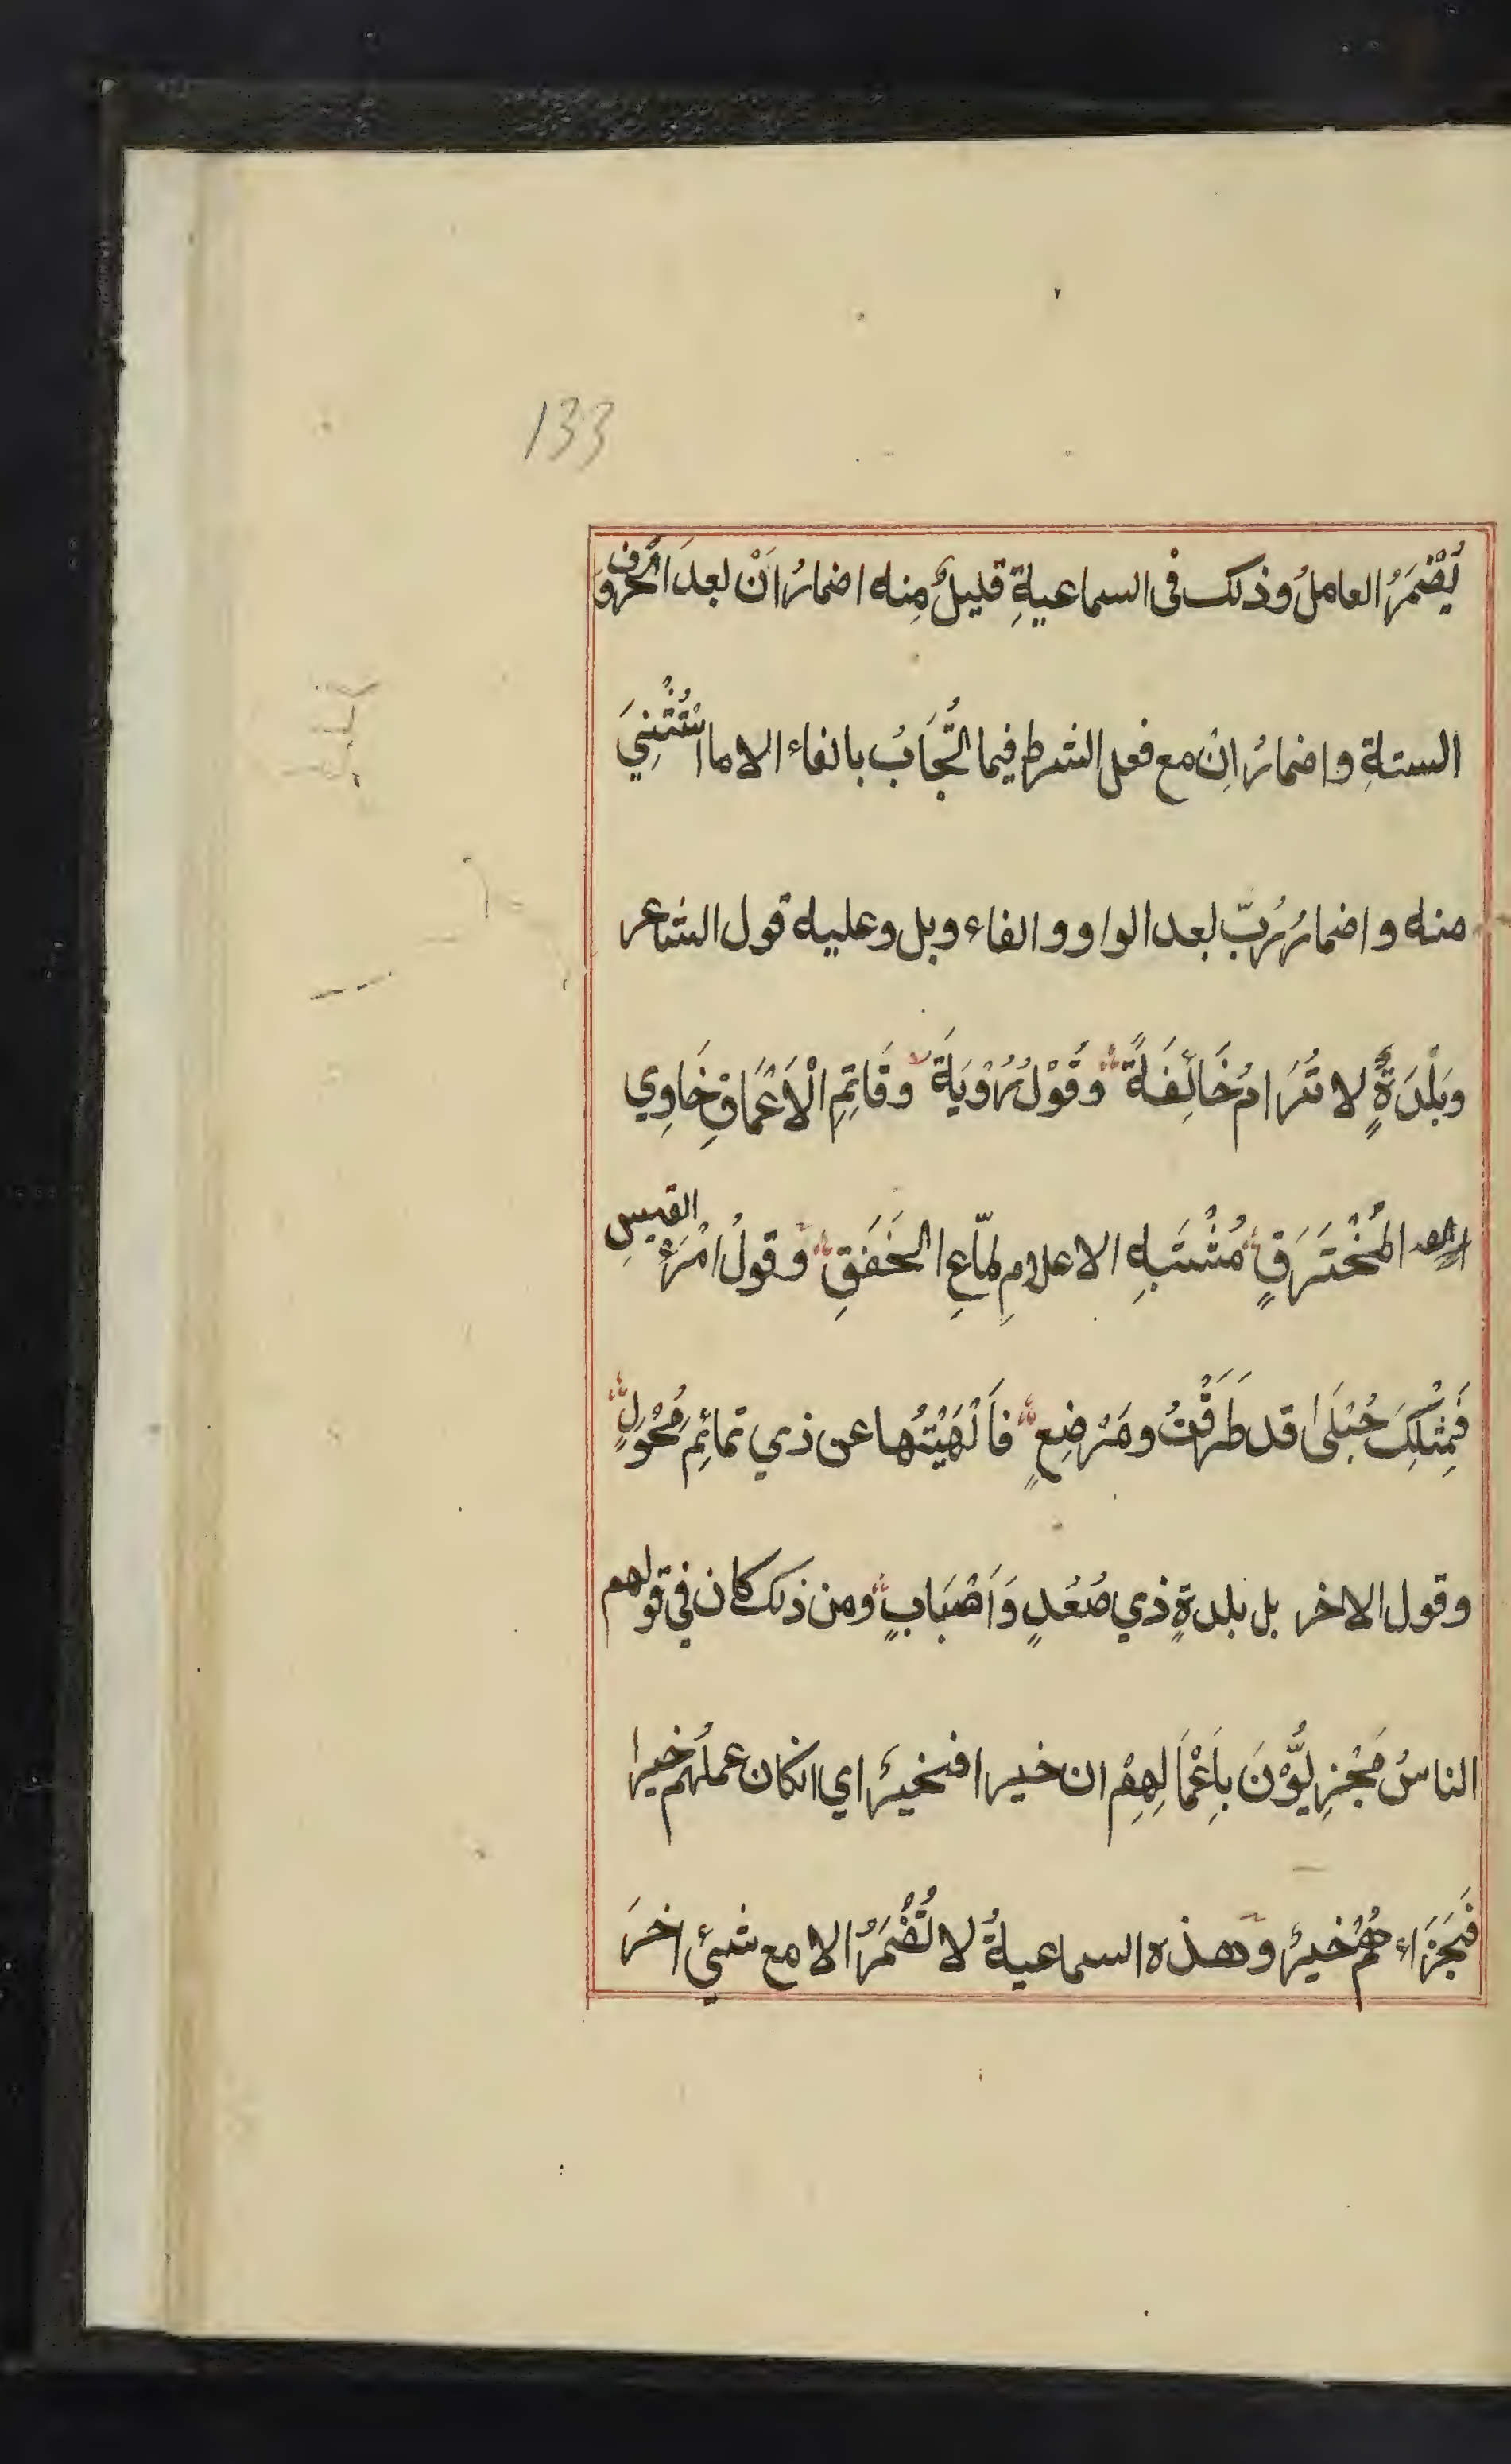 133
يُضْمَرُ العاملُ وذلك فى السماعيةِ قليلٌ مِنه اضمارُ اَنْ بعدَ الحروف
الستةِ واضمارُ اِنْ مع فعل الشرط فيما تُجَابُ بالفاء الا ما استُثْنِيَ
منه واضمارُ رُبّ بعد الواو والفاء وبل وعليه قول الشاعر
وَبَلْدَةٍ لا تُرَامُ خَائِفَةً وقَوْلُ رُؤيَةَ وقَاتِمِ الْاَعْمَاقِ خَاوِي
المُخْتَرَقِ مُشْتَبِهِ الاعلامِ لمّاعِ الخَفَقِ وقولُ امْرَءِ القيسِ
فَمِثْلِكِ حُبْلَى قد طَرَقْتُ ومُرْضِعٍ فاَلْهَيْتُها عن ذي تمائِمِ مُحْوِلٍ
وقول الاخر بل بلدةٍ ذي صُعُدٍ وَاَصْبَابٍ ومن ذلك كان في قولهم
الناسُ مَجْزِيُّوْنَ بِاَعْمَالِهِمْ ان خيرا فخيرٌ اي انكان عملُهم خيرا
فَجَزَاءهُمْ خيرٌ وهذه السماعيةُ لا تُضْمَرُ الا مع شيئ اخرَ